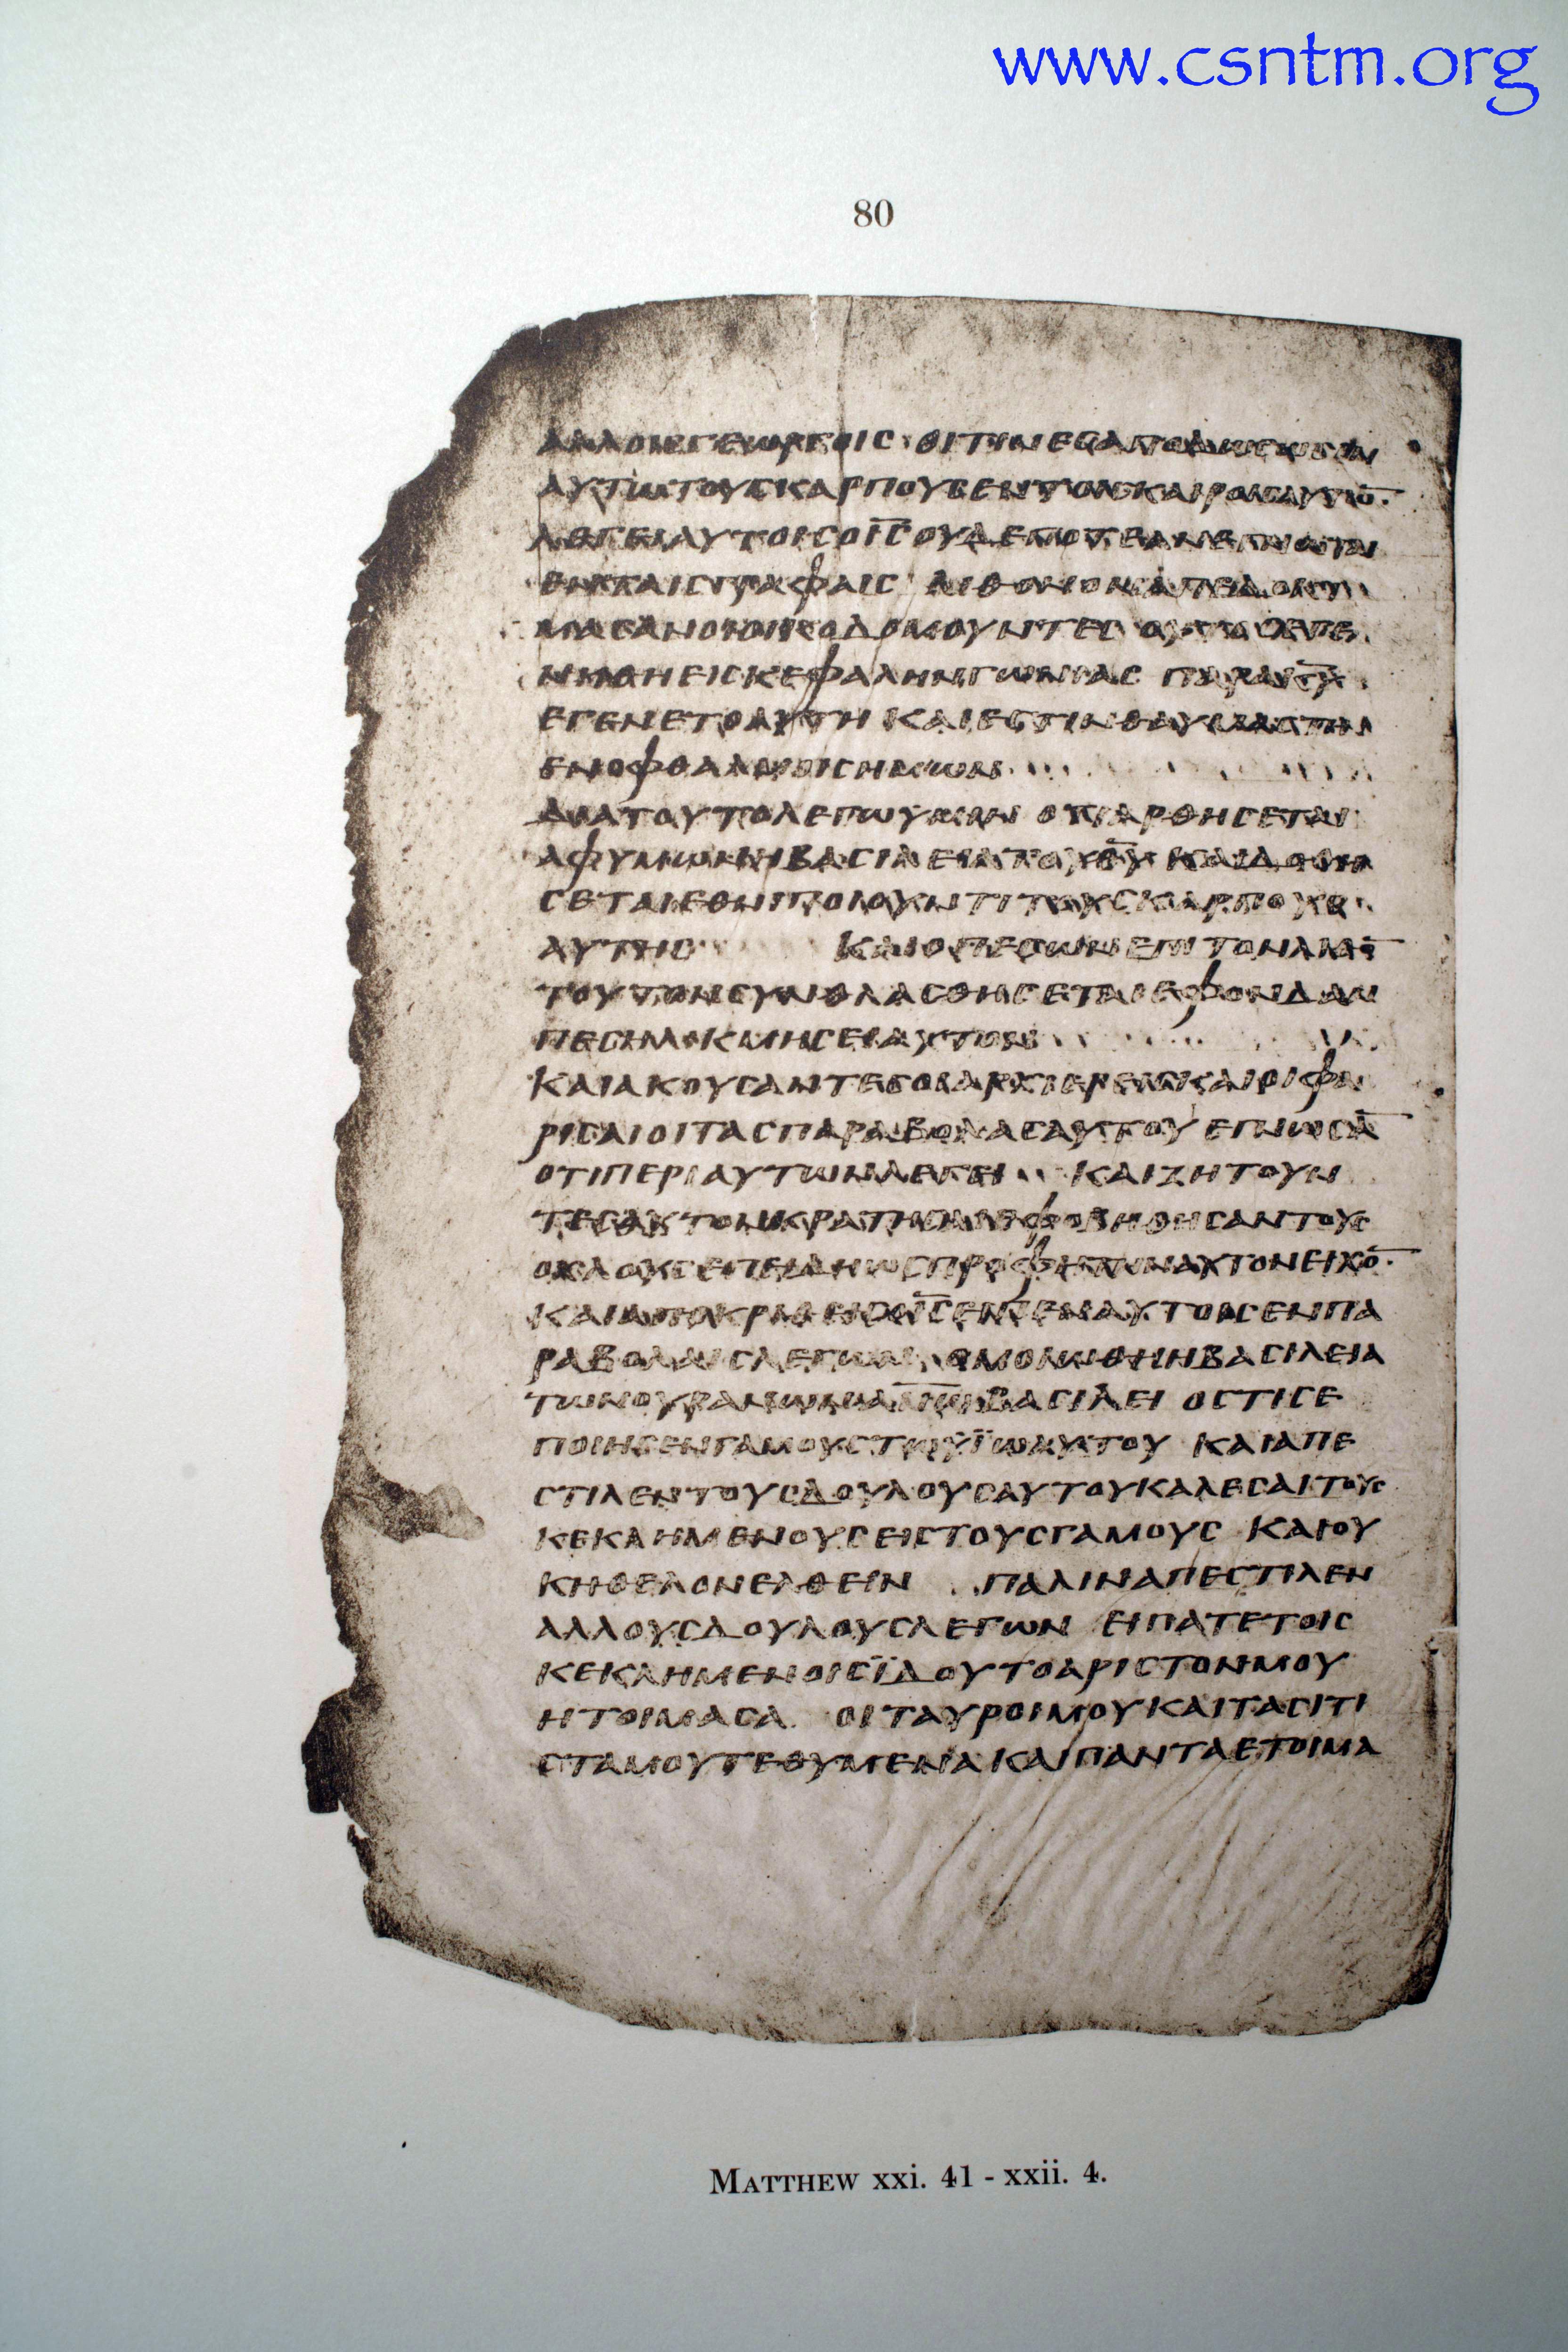 www.csntm.org
80
ΑΛΛΟΙϹΓΕΩΡΓΟΙϹ ΟΙΤΙΝΕϹΑΠΟΔΩϹΟΥϹΙΝ
ΑΥΤΩΤΟΥϹΚΑΡΠΟΥϹΕΝΤΟΙϹΚΑΙΡΟΙϹΑΥΤΩ̅
ΛΕΓΕΙΑΥΤΟΙϹΟΙ̅Ϲ̅ΟΥΔΕΠΟΤΕΑΝΕΓΝΩΤΑΙ
ΕΝΤΑΙϹΓΡΑΦΑΙϹ ΛΙΘΟΝΟΝΑΠΕΔΟΚΙ
ΜΑϹΑΝΟΙΟΙΚΟΔΟΜΟΥΝΤΕϹ ΟΥΤΟϹΕΓΕ
ΝΗΘΗΕΙϹΚΕΦΑΛΗΝΓΩΝΙΑϹ ΠΑΡΑΚ̅Υ̅
ΕΓΕΝΕΤΟΑΥΤΗ ΚΑΙΕϹΤΙΝΘΑΥΜΑϹΤΗ
ΕΝΟΦΘΑΛΜΟΙϹΗΜΩΝ
ΔΙΑΤΟΥΤΟΛΕΓΩΥΜΙΝ ΟΤΙΑΡΘΗϹΕΤΑΙ
ΑΦΥΜΩΝΗΒΑϹΙΛΕΙΑΤΟΥΘ̅Υ̅ ΚΑΙΔΟΘΗ
ϹΕΤΑΙΕΘΝΙΠΟΙΟΥΝΤΙΤΟΥϹΚΑΡΠΟΥϹ
ΑΥΤΗϹ ΚΑΙΟΠΕϹΩΝΕΠΙΤΟΝΛΙΘΟ̅
ΤΟΥΤΟΝϹΥΝΘΛΑϹΘΗϹΕΤΑΙΕΦΟΝΔΑΝ
ΠΕϹΗΛΙΚΜΗϹΕΙΑΥΤΟΝ
ΚΑΙΑΚΟΥϹΑΝΤΕϹΟΙΑΡΧΙΕΡΕΙϹΚΑΙΟΙΦΑ
ΡΙϹΑΙΟΙΤΑϹΠΑΡΑΒΟΛΑϹΑΥΤΟΥΕΓΝΩϹΑ̅
ΟΤΙΠΕΡΙΑΥΤΩΝΛΕΓΕΙ ΚΑΙΖΗΤΟΥΝ
ΤΕϹΑΥΤΟΝΚΡΑΤΗϹΑΙΕΦΟΒΗΘΗϹΑΝΤΟΥϹ
ΟΧΛΟΥϹΕΠΕΙΔΗΩϹΠΡΟΦΗΤΗΝΑΥΤΟΝΕΙΧΟ̅
ΚΑΙΑΠΟΚΡΙΘΕΙϹΟΙ̅Ϲ̅ΕΙΠΕΝΑΥΤΟΙϹΕΝΠΑ
ΡΑΒΟΛΑΙϹΛΕΓΩΝ ΟΜΟΙΩΘΗΗΒΑϹΙΛΕΙΑ
ΤΩΝΟΥΡΑΝΩΝΑ̅Ν̅Ω̅ΒΑϹΙΛΕΙ ΟϹΤΙϹΕ
ΠΟΙΗϹΕΝΓΑΜΟΥϹΤΩΥΙΩΑΥΤΟΥ ΚΑΙΑΠΕ
ϹΤΙΛΕΝΤΟΥϹΔΟΥΛΟΥϹΑΥΤΟΥΚΑΛΕϹΑΙΤΟΥϹ
ΚΕΚΛΗΜΕΝΟΥϹΕΙϹΤΟΥϹΓΑΜΟΥϹ ΚΑΙΟΥ
ΚΗΘΕΛΟΝΕΛΘΕΙΝ ΠΑΛΙΝΑΠΕϹΤΙΛΕΝ
ΑΛΛΟΥϹΔΟΥΛΟΥϹΛΕΓΩΝ ΕΙΠΑΤΕΤΟΙϹ
ΚΕΚΛΗΜΕΝΟΙϹΪΔΟΥΤΟΑΡΙϹΤΟΝΜΟΥ
ΗΤΟΙΜΑϹΑ ΟΙΤΑΥΡΟΙΜΟΥΚΑΙΤΑϹΙΤΙ
ϹΤΑΜΟΥΤΕΘΥΜΕΝΑΚΑΙΠΑΝΤΑΕΤΟΙΜΑ
MATTHEW xxi. 41 - xxii. 4.